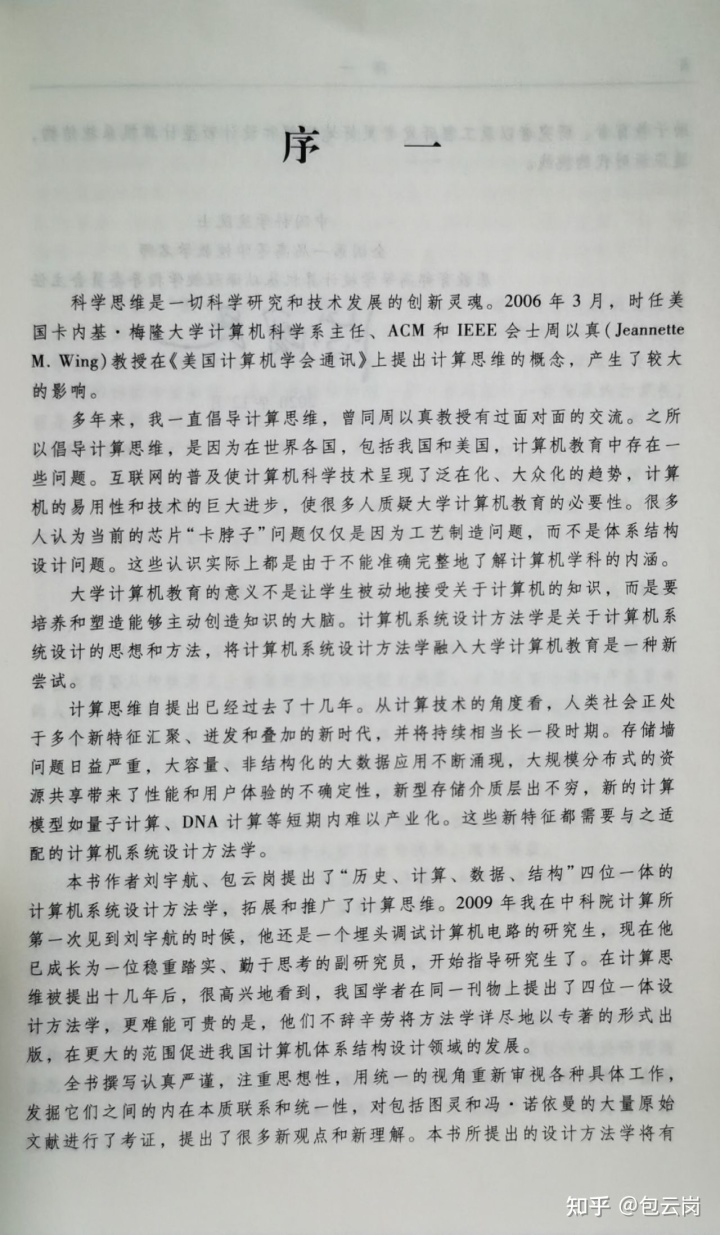 序 一
科学思维是一切科学研究和技术发展的创新灵魂。2006 年 3 月，时任美
国卡内基·梅隆大学计算机科学系主任、ACM 和 IEEE 会士周以真(Jeannette
M. Wing)教授在《美国计算机学会通讯》上提出计算思维的概念，产生了较大
的影响。
多年来，我一直倡导计算思维，曾同周以真教授有过面对面的交流。之所
以倡导计算思维，是因为在世界各国，包括我国和美国，计算机教育中存在一
些问题。互联网的普及使计算机科学技术呈现了泛在化、大众化的趋势，计算
机的易用性和技术的巨大进步，使很多人质疑大学计算机教育的必要性。很多
人认为当前的芯片“卡脖子”问题仅仅是因为工艺制造问题，而不是体系结构
设计问题。这些认识实际上都是由于不能准确完整地了解计算机学科的内涵。
大学计算机教育的意义不是让学生被动地接受关于计算机的知识，而是要
培养和塑造能够主动创造知识的大脑。计算机系统设计方法学是关于计算机系
统设计的思想和方法，将计算机系统设计方法学融入大学计算机教育是一种新
尝试。
计算思维自提出已经过去了十几年。从计算技术的角度看，人类社会正处
于多个新特征汇聚、迸发和叠加的新时代，并将持续相当长一段时期。存储墙
问题日益严重，大容量、非结构化的大数据应用不断涌现，大规模分布式的资
源共享带来了性能和用户体验的不确定性，新型存储介质层出不穷，新的计算
模型如量子计算、DNA 计算等短期内难以产业化。这些新特征都需要与之适
配的计算机系统设计方法学。
本书作者刘宇航、包云岗提出了“历史、计算、数据、结构”四位一体的
计算机系统设计方法学，拓展和推广了计算思维。2009 年我在中科院计算所
第一次见到刘宇航的时候，他还是一个埋头调试计算机电路的研究生，现在他
已成长为一位稳重踏实、勤于思考的副研究员，开始指导研究生了。在计算思
维被提出十几年后，很高兴地看到，我国学者在同一刊物上提出了四位一体设
计方法学，更难能可贵的是，他们不辞辛劳将方法学详尽地以专著的形式出
版，在更大的范围促进我国计算机体系结构设计领域的发展。
全书撰写认真严谨，注重思想性，用统一的视角重新审视各种具体工作，
发掘它们之间的内在本质联系和统一性，对包括图灵和冯·诺依曼的大量原始
文献进行了考证，提出了很多新观点和新理解。本书所提出的设计方法学将有
知乎 @包云岗